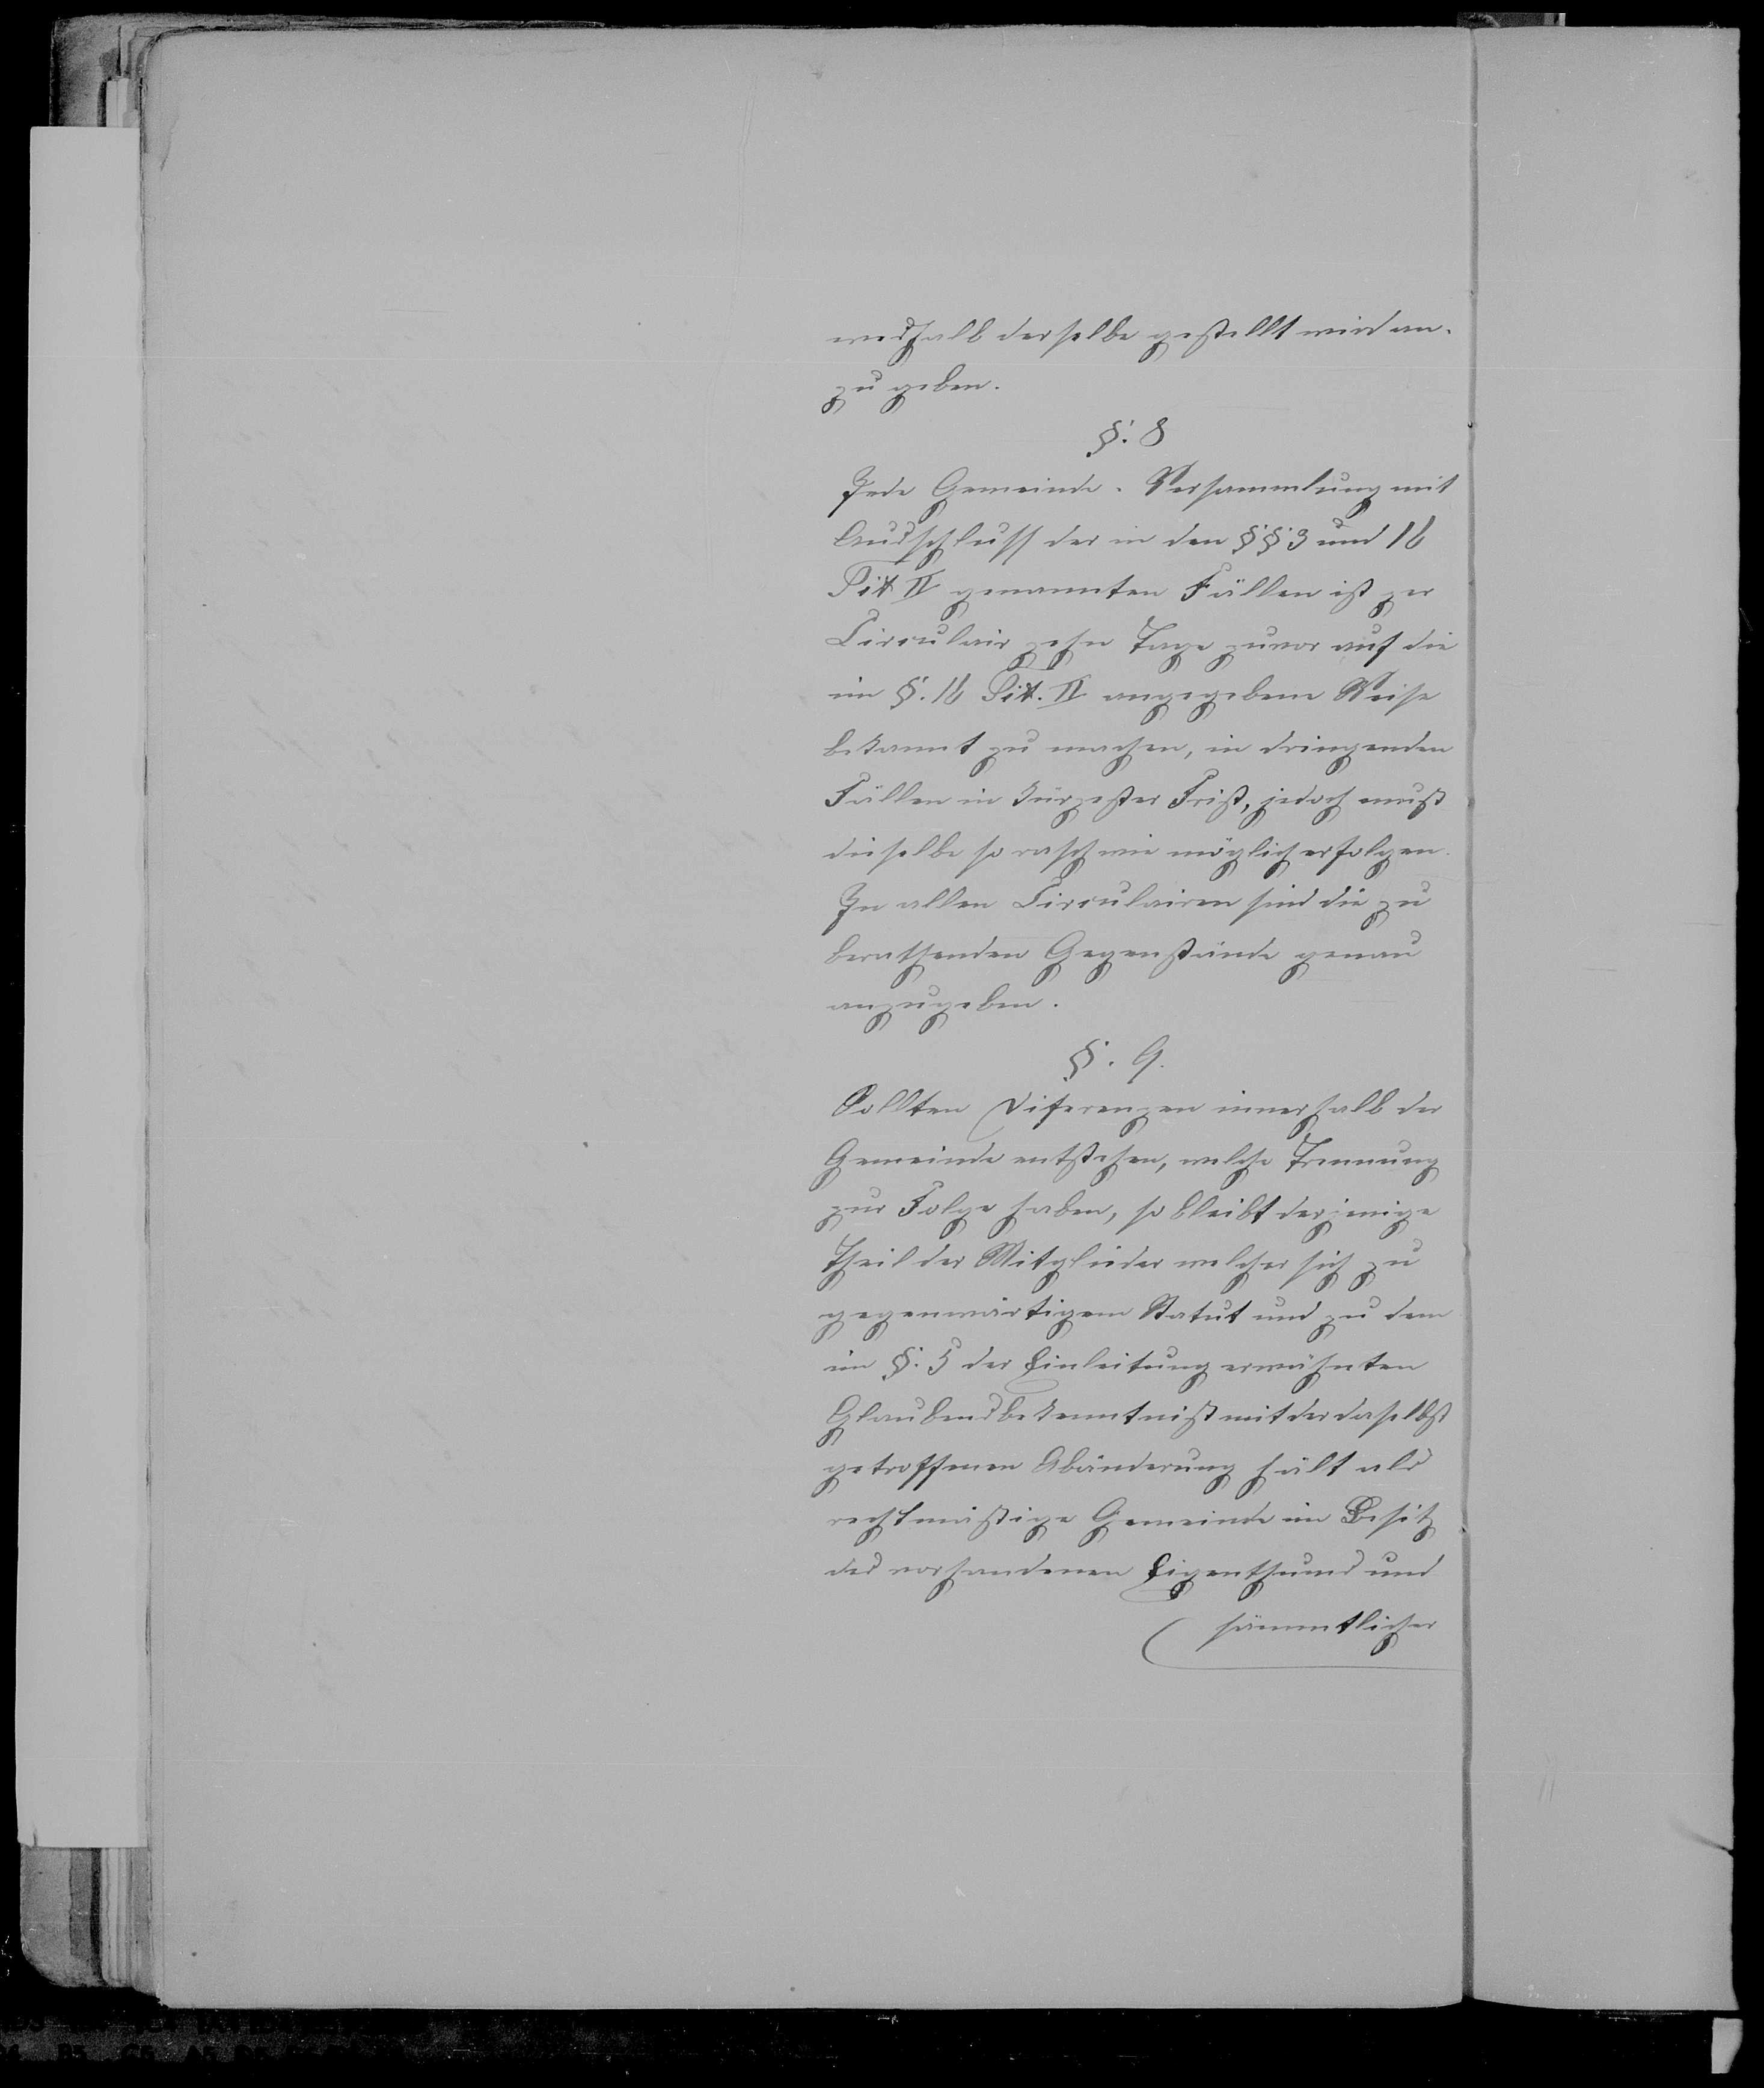 weshalb derselbe gestellt wird an-
zu geben.
§. 8
Jede Gemeinde-Versammlung mit
Ausschluss der in den §§ 3 und 16
Tit II genannten Fällen ist per
Circulair zehn Tage zuvor auf die
im §. 16 Tit. II angegebene Weise
bekannt zu machen, in dringenden
Fällen in kürzester Frist, jedoch muß
dieselbe so rasch wie möglich erfolgen.
In allen Circulairen sind die zu
berathenden Gegenstände genau
anzugeben.
§. 9.
Sollten Diferenzen innerhalb der
Gemeinde entstehen, welche Trennung
zur Folge haben, so bleibt derjenige
Theil der Mitglieder welcher sich zu
gegenwärtigem Statut und zu dem
im §. 5 der Einleitung erwähnten
Glaubensbekenntniß mit der daselbst
getroffenen Abänderung hält als
rechtmäßige Gemeinde im Besitz
des vorhandenen Eigenthums und
sämmtlicher